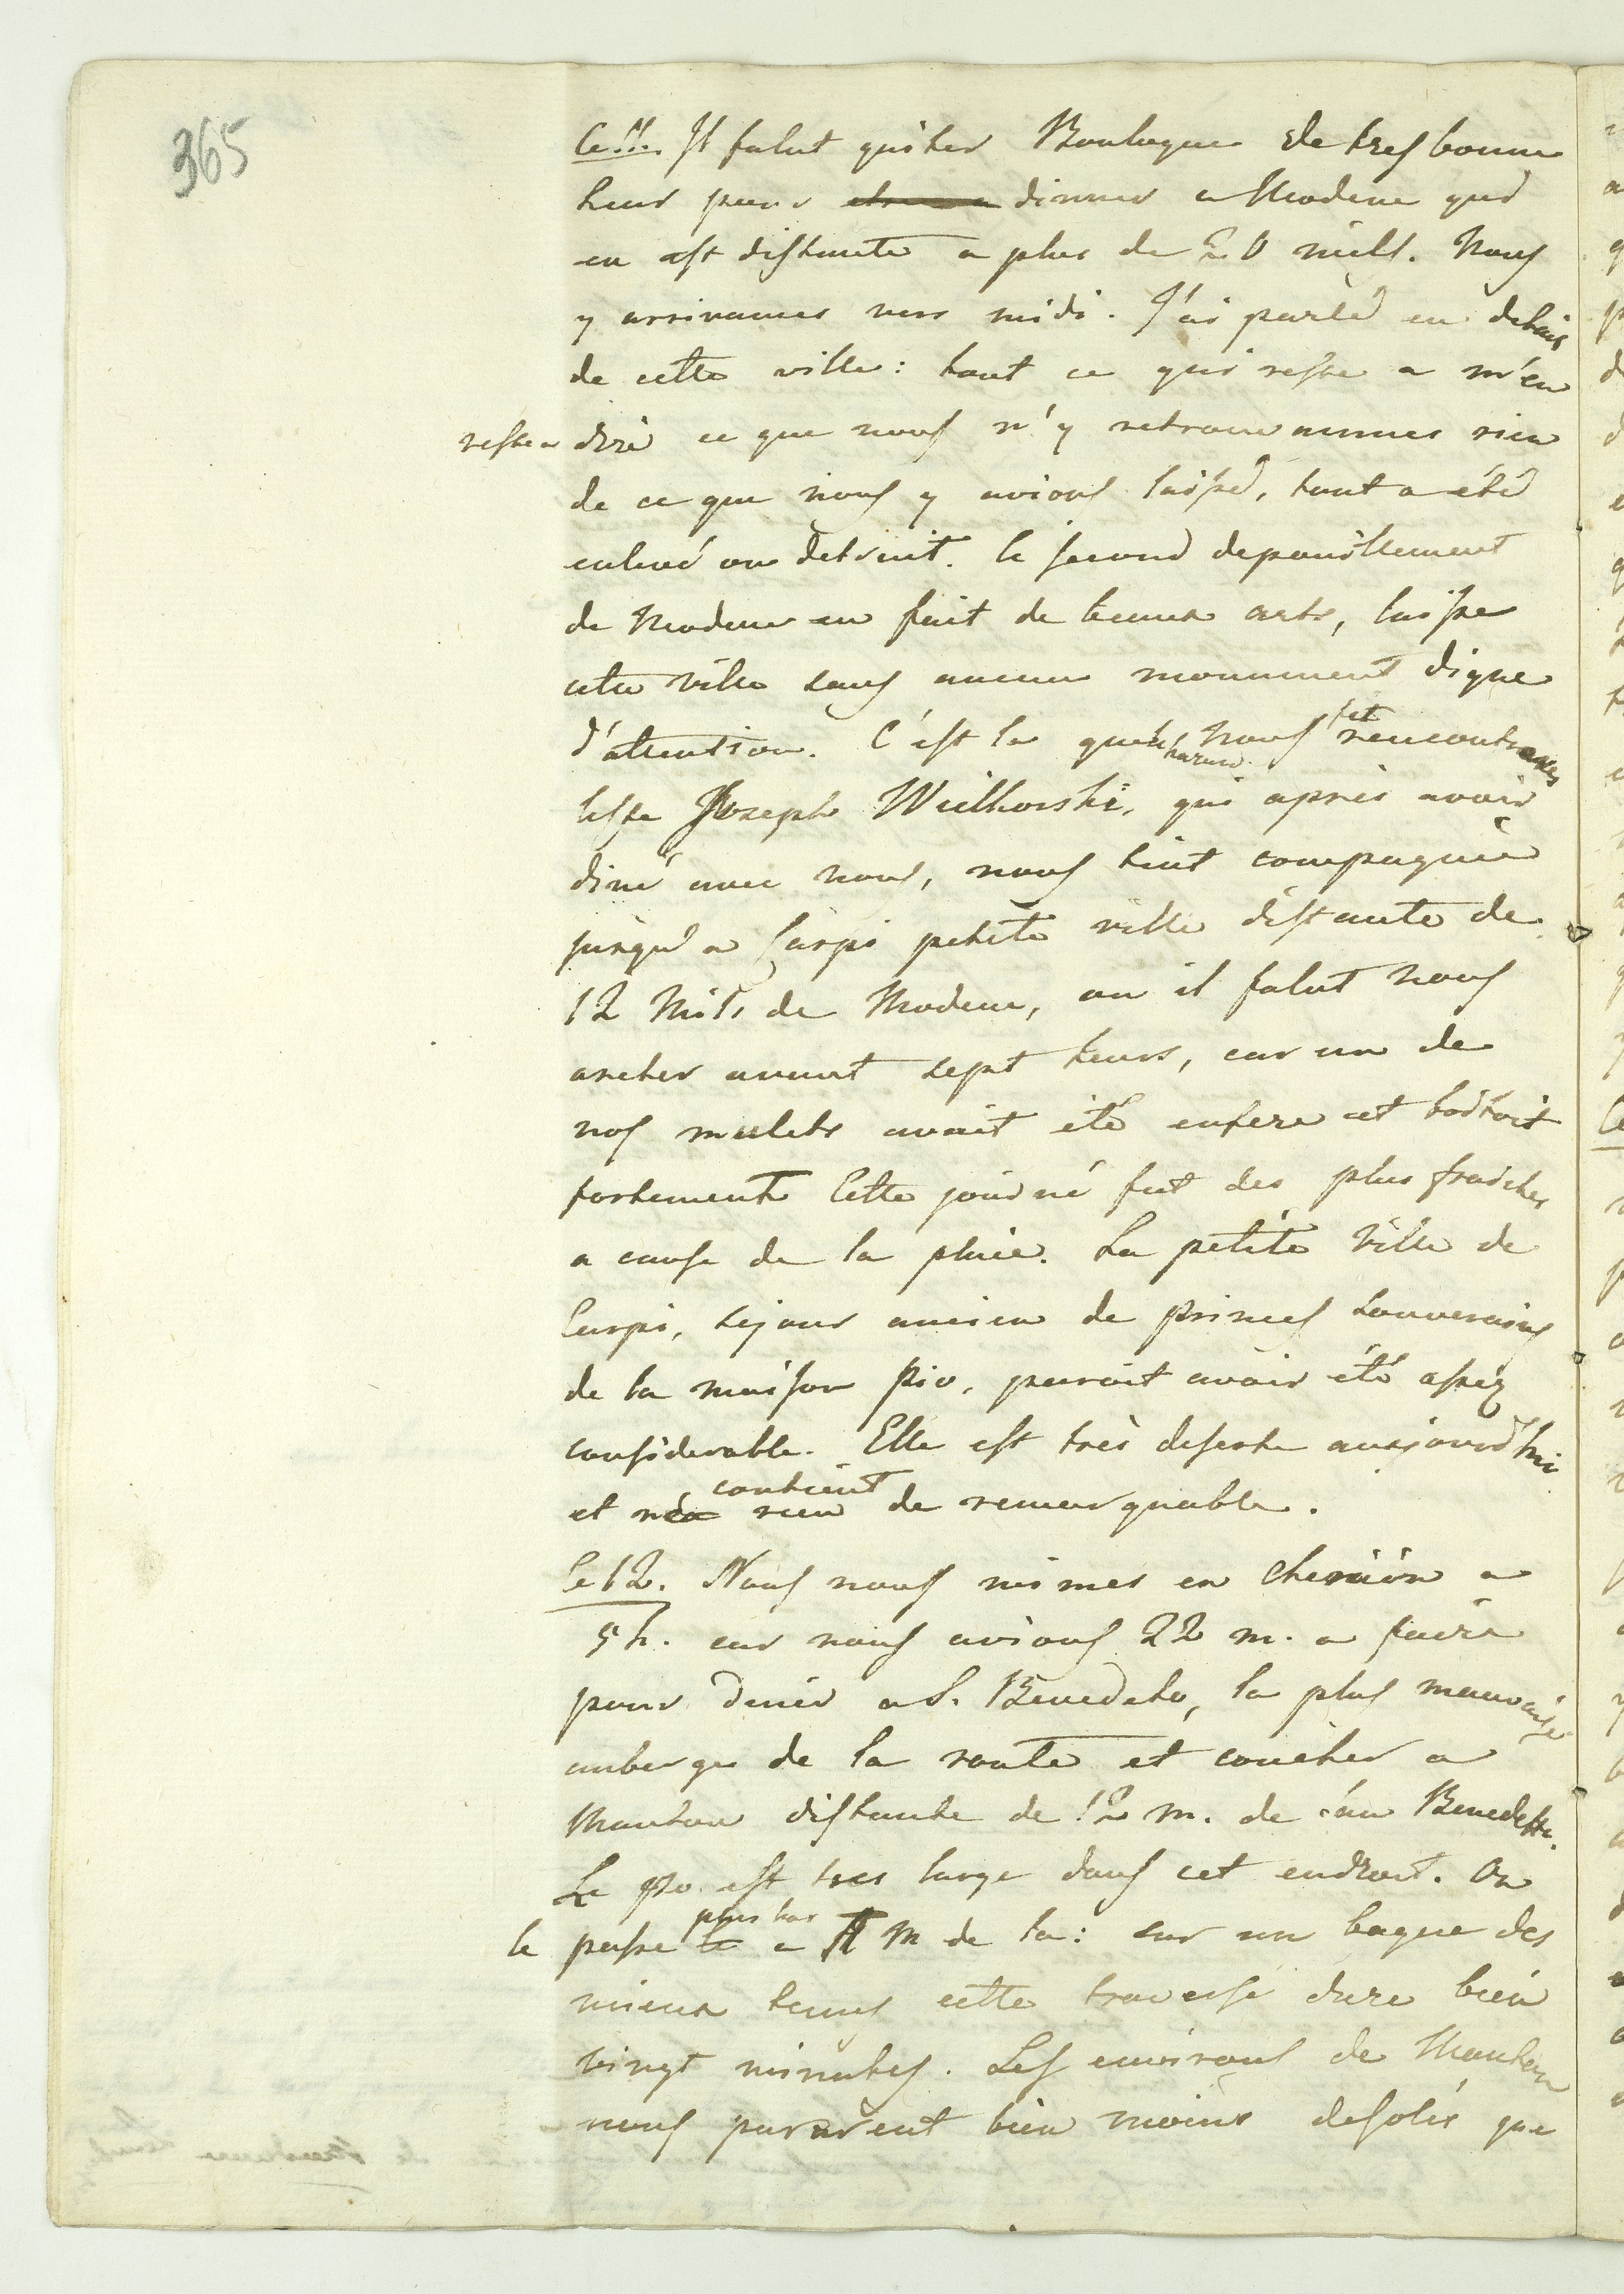 365
Ce 11. Il falut quiter Boulogne de tres bonne
heur pour dinner a Modene qui
en est distante a plus de 20 mils. Nous
y arrivames vers midi. J'ai parlé en detail
de cette ville: tout ce qui reste a m'en
reste a dire ce que nous n'y retrouvammes rien
de ce que nous y avions laissé, tout a été
enlevé ou detruit. le second depouillement
de Modene en fait de beaux arts, laisse
cette ville sans aucun monument digne
d'attention. C'est la que le hazard nous fit rencontrer
leste Joseph Wielhorski, qui après avoir
diné avec nous, nous tint compagnie
jusqu'a Carpi petite ville distante de
12 Mils de Modene, ou il falut nous
areter avant sept heurs, car un de
nos mulets avait été enferé et boitoit
fortement Cette journé fut des plus fraiches
a cause de la pluie. La petite ville de
Carpi, sejour ancien de princes souverains
de la maison Pio, parait avoir été assez
considerable. Elle est très deserte aujourd'hui
et ne contient rien de remarquable.
Le 12. Nous nous mimes en chemin a
5 h. car nous avions 22 m. a faire
pour diner a S. Benedeto, la plus mauvaise
auberge de la route et coucher a
Mantou distante de 12 m. de san Benedetto.
Le Po est tres large dans cet endroit. On
le passe plus bas a m de la: sur un baque des
mieux tenus cette traversé dure bien
vingt minutes. Les environs de Mantou
nous pararent bien moins desolés que